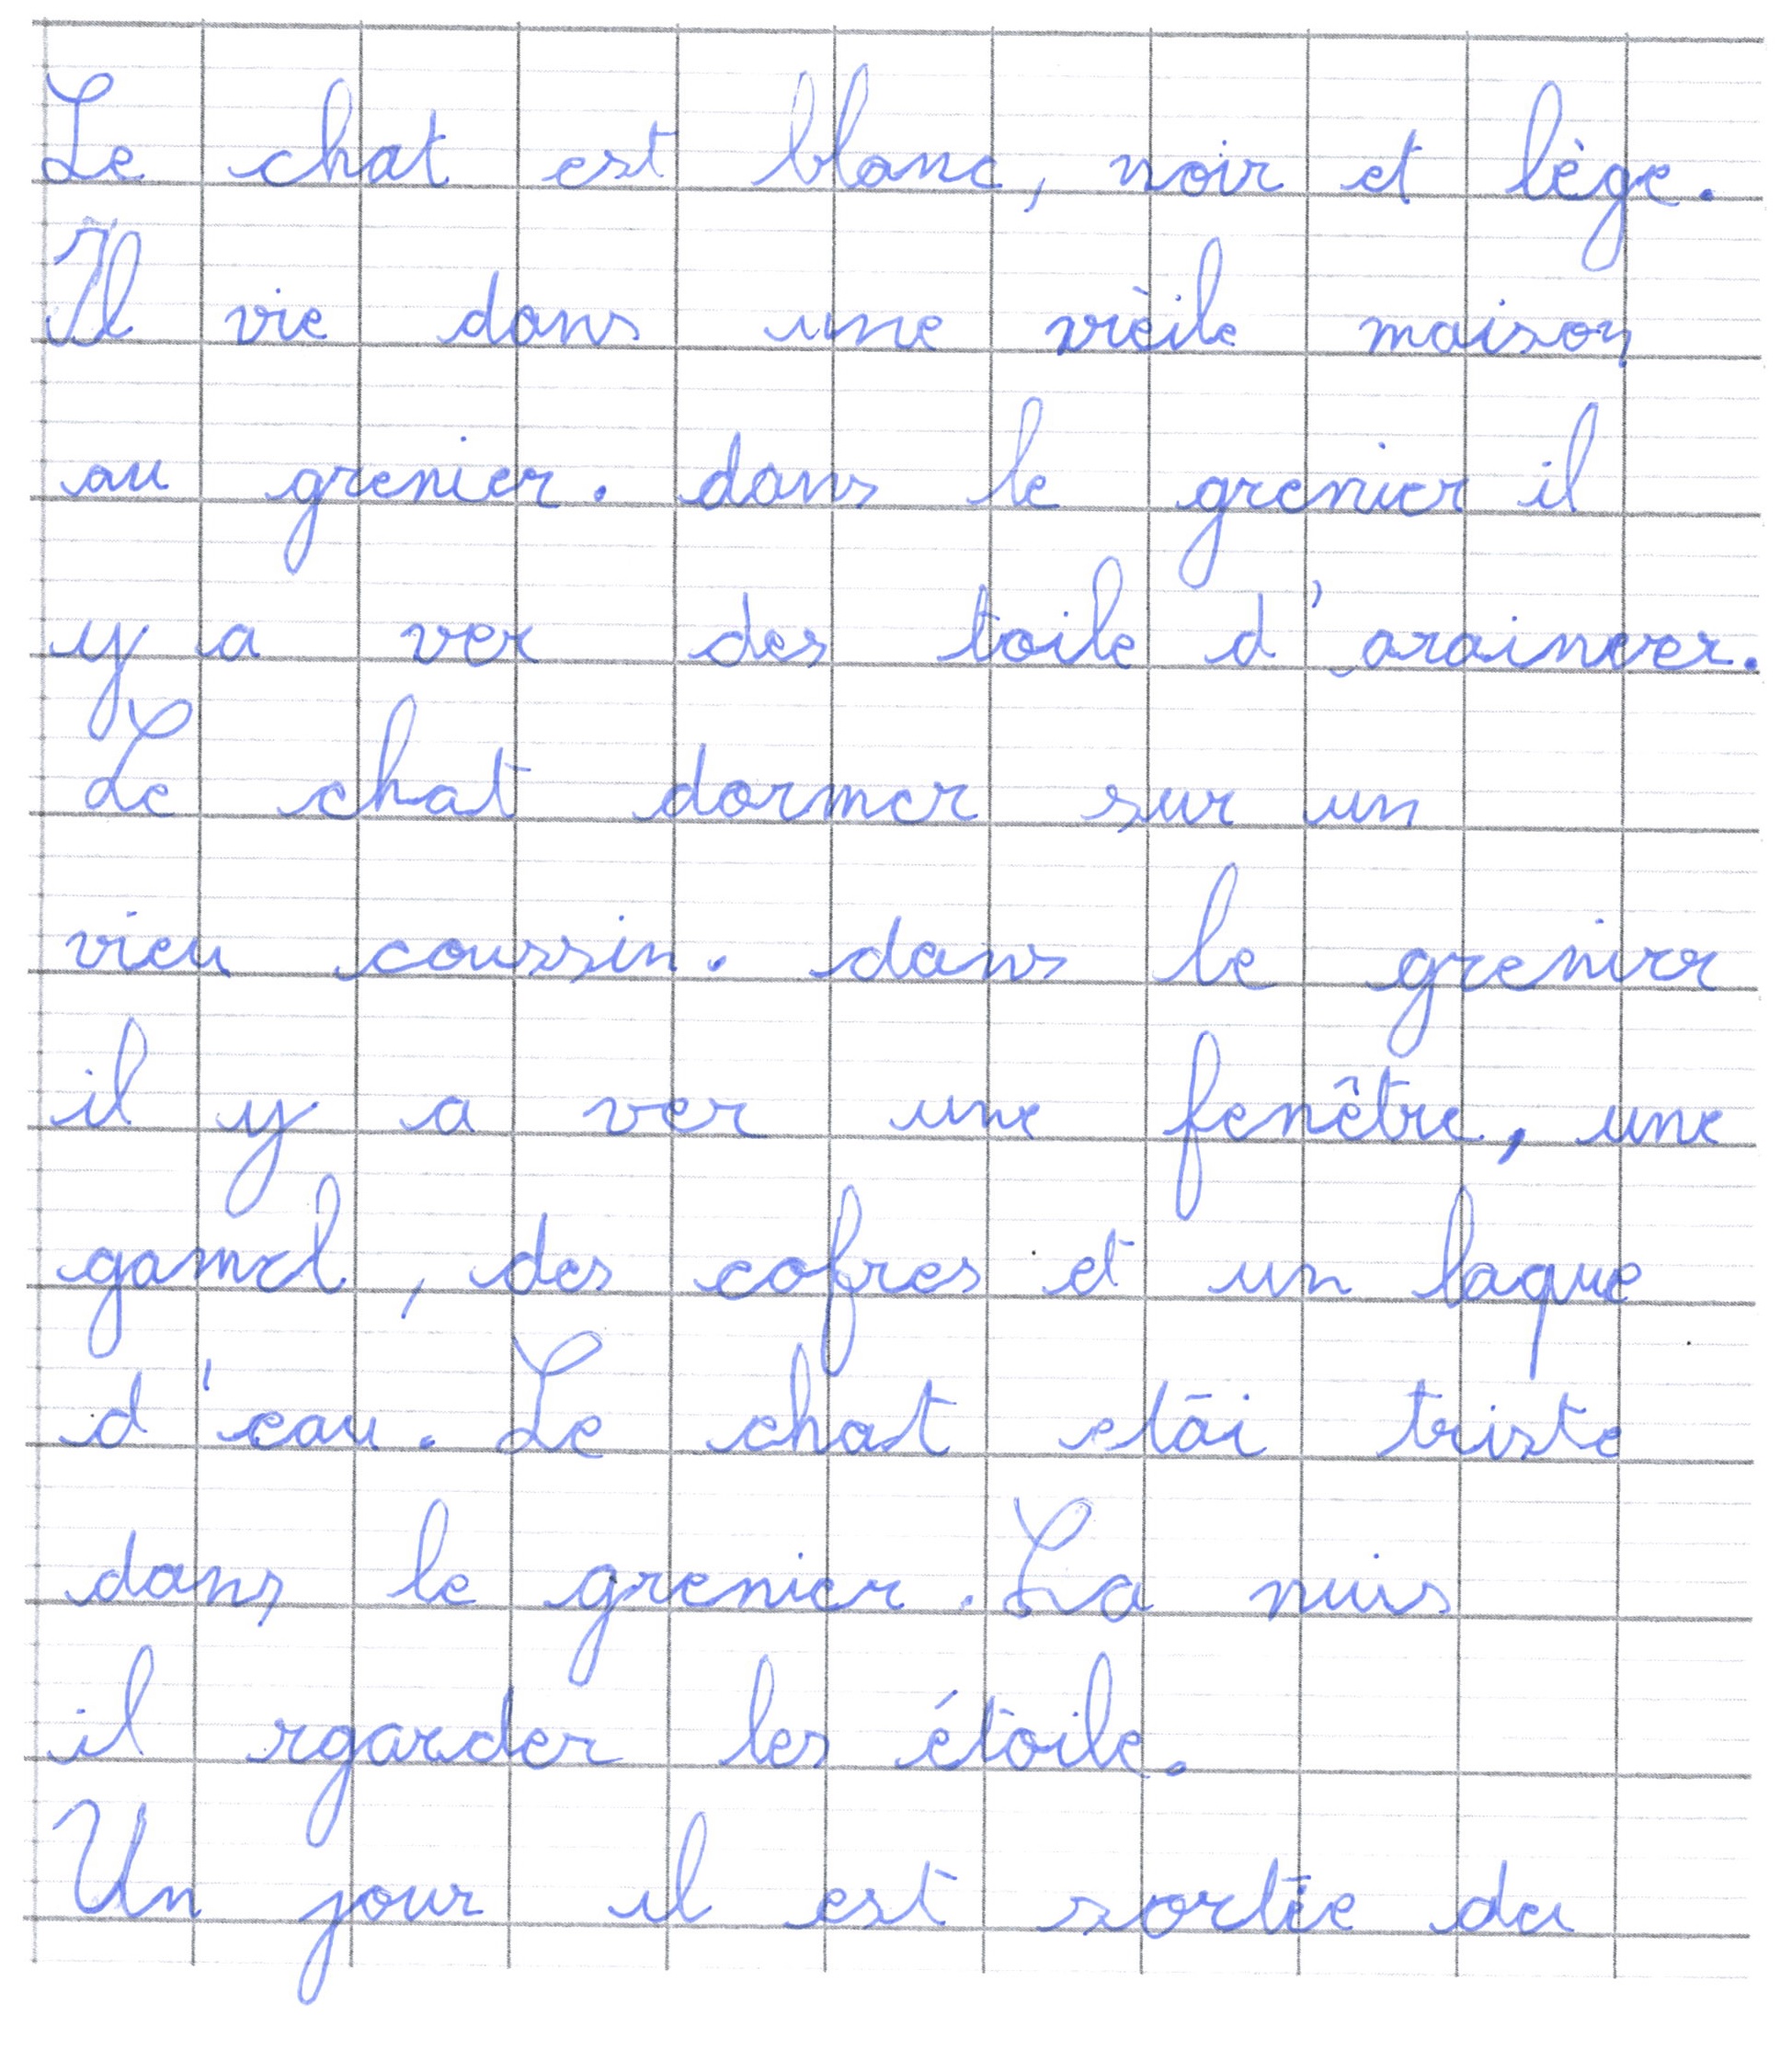 Le chat est blanc, noir et lège.
Il vie dans une vièile maison
au grenier. dans le grenier il
y a ver des toile d'araineer.
Le chat dormer sur un
vieu coussin. dans le grenier
il y a ver une fenêtre, une
gamel, des cofres et un laque
d'eau. Le chat etāi triste
dans le grenier. La nuis
il rgarder les étoile.
Un jour il est sortie du